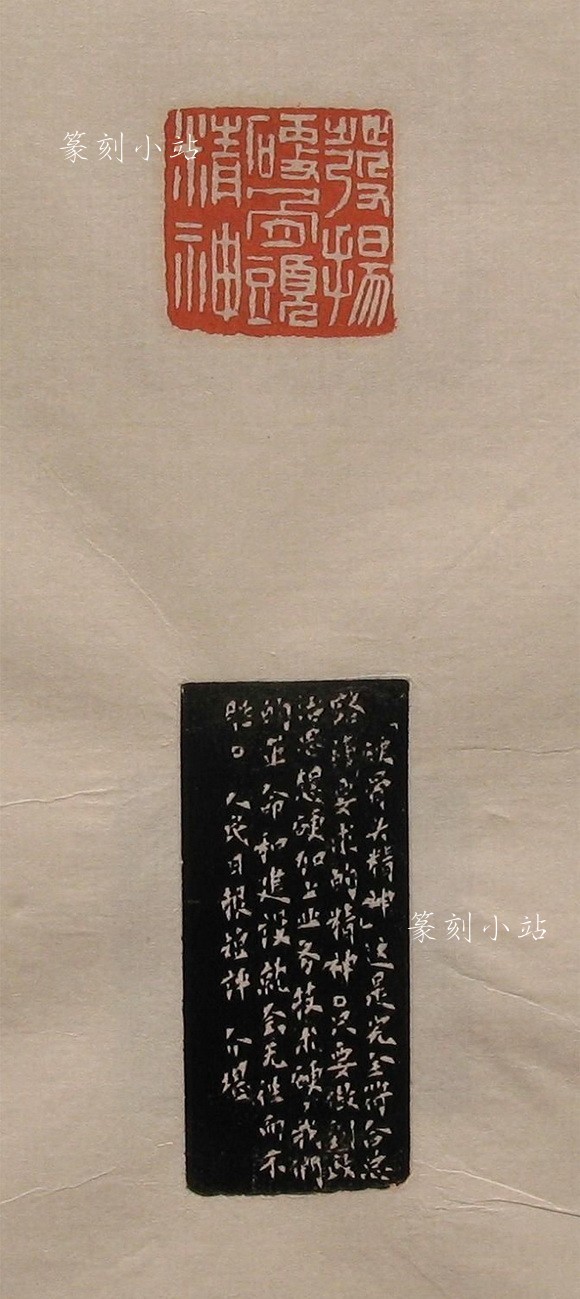 篆刻小站
發揚
硬骨頭
精神
「硬骨头精神」这是完全符合总
路线要求的精神。只要做到政
治思想硬加上业务技术硬,我們
的革命和建設就会无往而不
胜。人民日報短評 介堪
篆刻小站